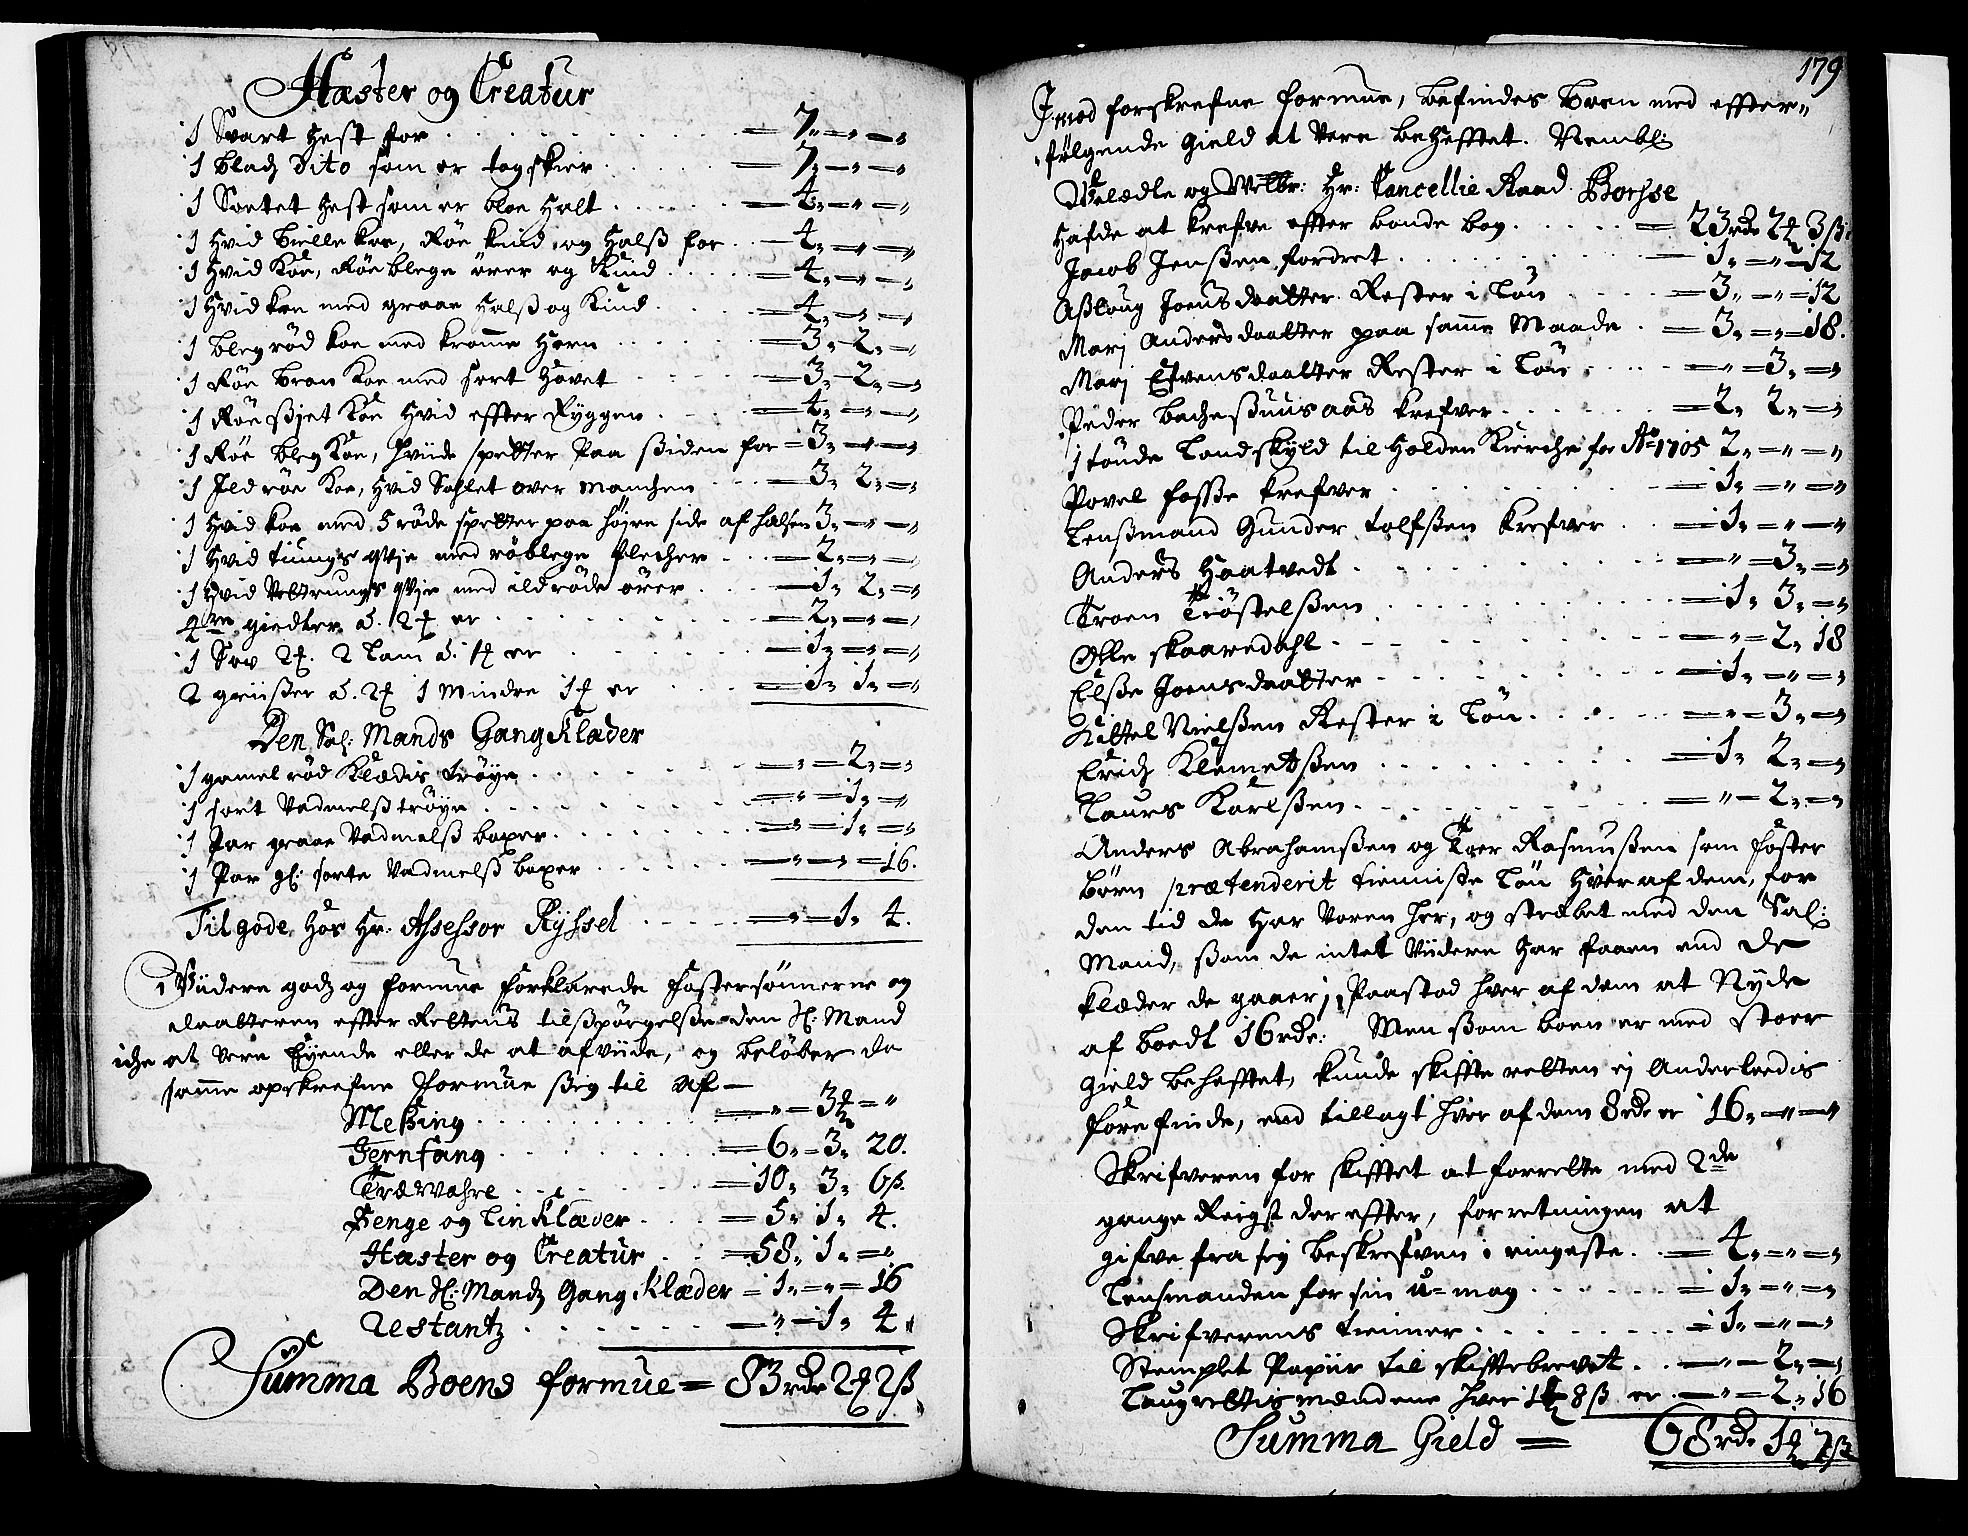 Hæster og Creatur
1 Svart Hest for . . . . = 7 " = " = "
1 black Dito som er togskier . . . = 7 " = " = "
1 Sortet Hest som er bloe Halt . . . = 4 " = " = "
1 Hvid Bielle koe, Røe kind og Halß for . . = 4 " = " = "
1 Hvid Koe, Røe blege ører og Kind . . . = 4 " = " = "
1 Hvid koe med graae Halß og Kind . . . = 4 " = " = "
1 bleg rød koe med kromme Horn . . . = 3 " 2 " = "
1 Røe bron Koe med sort Hovet . . . = 3 " 2 " = "
1 Røe ßiet Koe Hvid effter Ryggen . . . = 4 " = " = "
1 Røe bleg Koe, Hviide spetter Paa ßiden for = 3 " = " = "
1 Ild røe Koe, Hvid Sahlet over Manchen . . . = 3 " 2 " = "
1 Hvid koe med 5 røde spetter paa højre side af halsen 3 " = " = "
1 Hvid tiungs qvije med røblege flecher . . . = 2 " = " = "
1 Hvid Vettrungs qvije med ildrøde ører . . . = 1 " 2 " = "
4re giedter à 2 ort er . . . = 2 " = " = "
1 Sov 2 ort. 2 Lam à 1 ort er . . . = 1 " = " = "
2 griißer à 2 ort 1 Mindre 1 ort er . . . = 1 " 1 " = "
Den Sal: Mands Gang Klæder
1 gamel rød Klædis trøye . . . = " = 2 " = "
1 sort Vadmelß trøye . . . = " = 1 " = "
1 Par graae Vadmelß boxer . . . = " = 1 " = "
1 Par gl: sorte Vadmelß boxer . . . = " = " = 16.
Til gode hos Hr: Assessor Ryssel . . . = " = 1 " 4.
Viidere godz og formue forklarede Fostersønnerne og
daatteren effter Rettens tilßpørgelße den Sl: Mand
iche at vere Eyende eller de at afviide, og beløber da
samme opskrefne formue ßig til Af =
Meßing . . . = " = 3 ort = "
Jernfang . . . = 6 " = 3 " 20.
Træwahre . . . = 10 " 3 " 6ß.
Senge og Linklæder . . . = 5 " 1 " 4.
Hæster og Creatur . . . = 58 " 1 " = "
Den Sl: Mandz Gang Klæder = 1 " = " = 16
Restantz . . . = " = 1 " 4 "
Summa Boens formue = 83 rdr 2 ort 2ß
179
Imod forskrefne formue, befindes boen med effter=
følgende gield at vere behefftet. Nembl:
Velædle og Welbr: Hr: Cancellie Raad Borse
Hafde at krefve effter bonde bog . . . = 23 rdr 2 ort 3ß.
Jacob Jenßen fordret . . . = 1 " = " = 12
Aßloug Joensdaatter Rester i Løn . . . = 3 " = " = 12
Marj Andersdaatter paa samme Maade . = 3 " = " = 18.
Marj Efvensdaatter Rester i Løn . . . = " = 3 " = "
Peder Bacheßuusaas krefver . . . = 2 " 2 " = "
1 tønde Landskyld til Holden Kierche for Ao 1705 2 " = " = "
Povel Foße krefver . . . = 1 " = " = "
Lenßmand Gunder tolfßen krefver . . . = 1 " = " = "
Anders Haatvedt . . . = " = 3 " = "
Troen Trøstelßen . . . = 1 " 3 " = "
Olle skaaredahl . . . = " = 2 " 18
Elße Joensdaatter . . . = 1 " = " = "
Kittel Nielßen Rester i Løn . . . = " = 3 " = "
Erich Klemetßen . . . = 1 " 2 " = "
Laurs Karlßen . . . = " = 2 " = "
Anders Abrahamßen og Toer Rasmußen som foster
børn prætenderit tienniste Løn Hver af dem, for
den tid de har voren her, og stræbet med den Sal:
Mand, ßom de intet viidere har faaen end de
klæder de gaaer j, Paastod hver af dem at Nyde
af boedt 16 rdr: Men ßom boen er med stoer
gield behefftet, kunde skiffte retten ej Anderleedis
forefinde, end tillagt hver af dem 8 rdr er 16 " = " = "
Skrifveren for skifftet at forrette med 2de
gange Reigst der effter, forretningen at
gifve fra sig beskrefven i ringeste . . = 4 " = " = "
Lensmanden for sin u=mag . . . = 1 " = " = "
Skrifverens tienner . . . = 1 " = " = "
Stemplet Papiir til skifftebrevet . . = " = 2 " = "
Laugrettismændene hver 1 ort 8ß er . = " = 2 " 16
Summa Gield = 68 rdr 1 ort 7ß